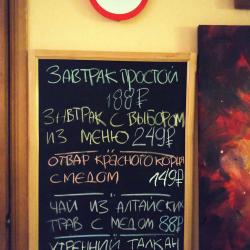 ЗАВТРАК ПРОСТОЙ
188₽
ЗАВТРАК С ВЫБОРОМ
ИЗ МЕНЮ 249₽
ОТВАР КРАСНОГО КОРНЯ
С МЕДОМ 149₽
ЧАЙ ИЗ АЛТАЙСКИХ
ТРАВ С МЕДОМ 88₽
УТРЕННИЙ ТАЛКАН